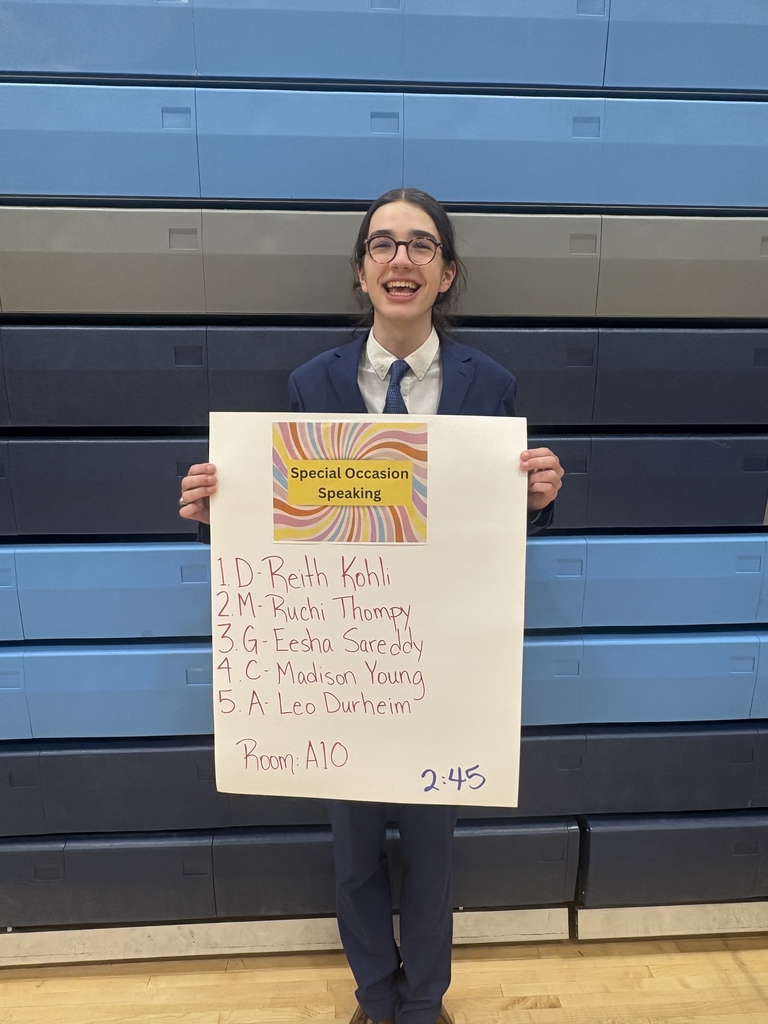 Special Occasion
Speaking
1. D- Reith Kohli
2. M- Ruchi Thompy
3. G- Eesha Sareddy
4. C- Madison Young
5. A- Leo Durheim
Room: A10
2:45